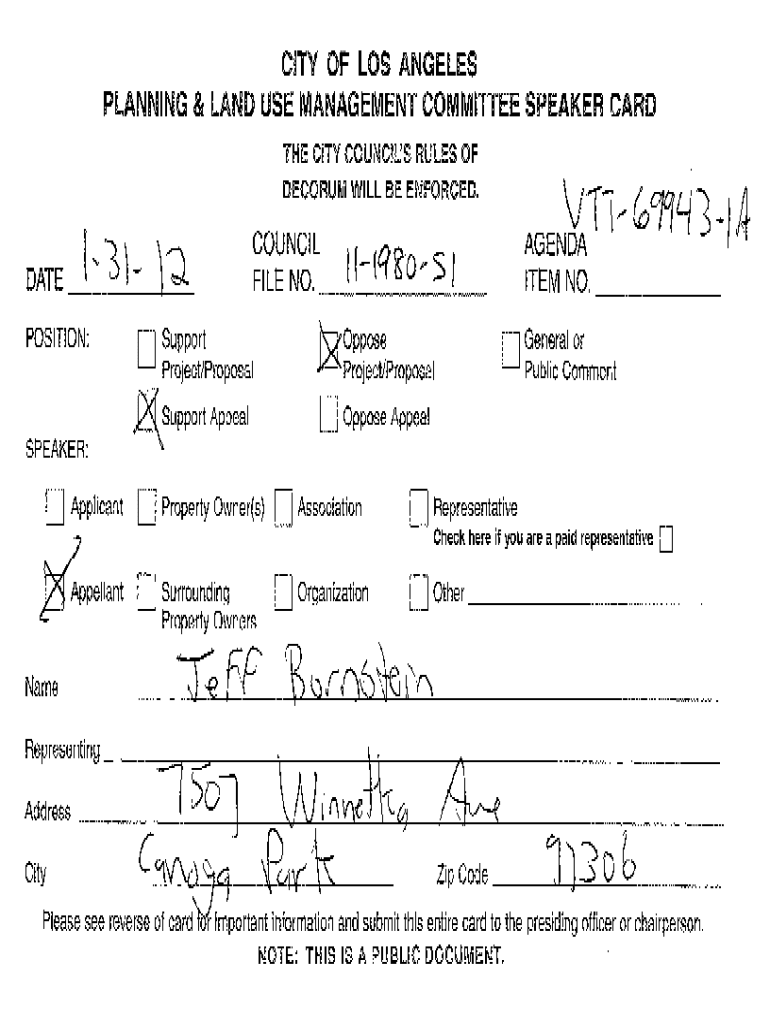 CITY OF LOS ANGELES
PLANNING & LAND USE MANAGEMENT COMMITTEE SPEAKER CARD
THE CITY COUNCIL'S RULES OF
DECORUM WILL BE ENFORCED.
VTT-69943-1A
DATE 1-31-12 COUNCIL FILE NO. 11-1980-S1 AGENDA ITEM NO.
POSITION: Support Project/Proposal Oppose Project/Proposal General or Public Comment
Support Appeal Oppose Appeal
SPEAKER:
Applicant Property Owner(s) Association Representative
Check here if you are a paid representative
Appellant Surrounding Property Owners Organization Other
Name Jeff Bornstein
Representing
Address 7507 Winnetka Ave
City Canoga Park Zip Code 91306
Please see reverse of card for important information and submit this entire card to the presiding officer or chairperson.
NOTE: THIS IS A PUBLIC DOCUMENT.